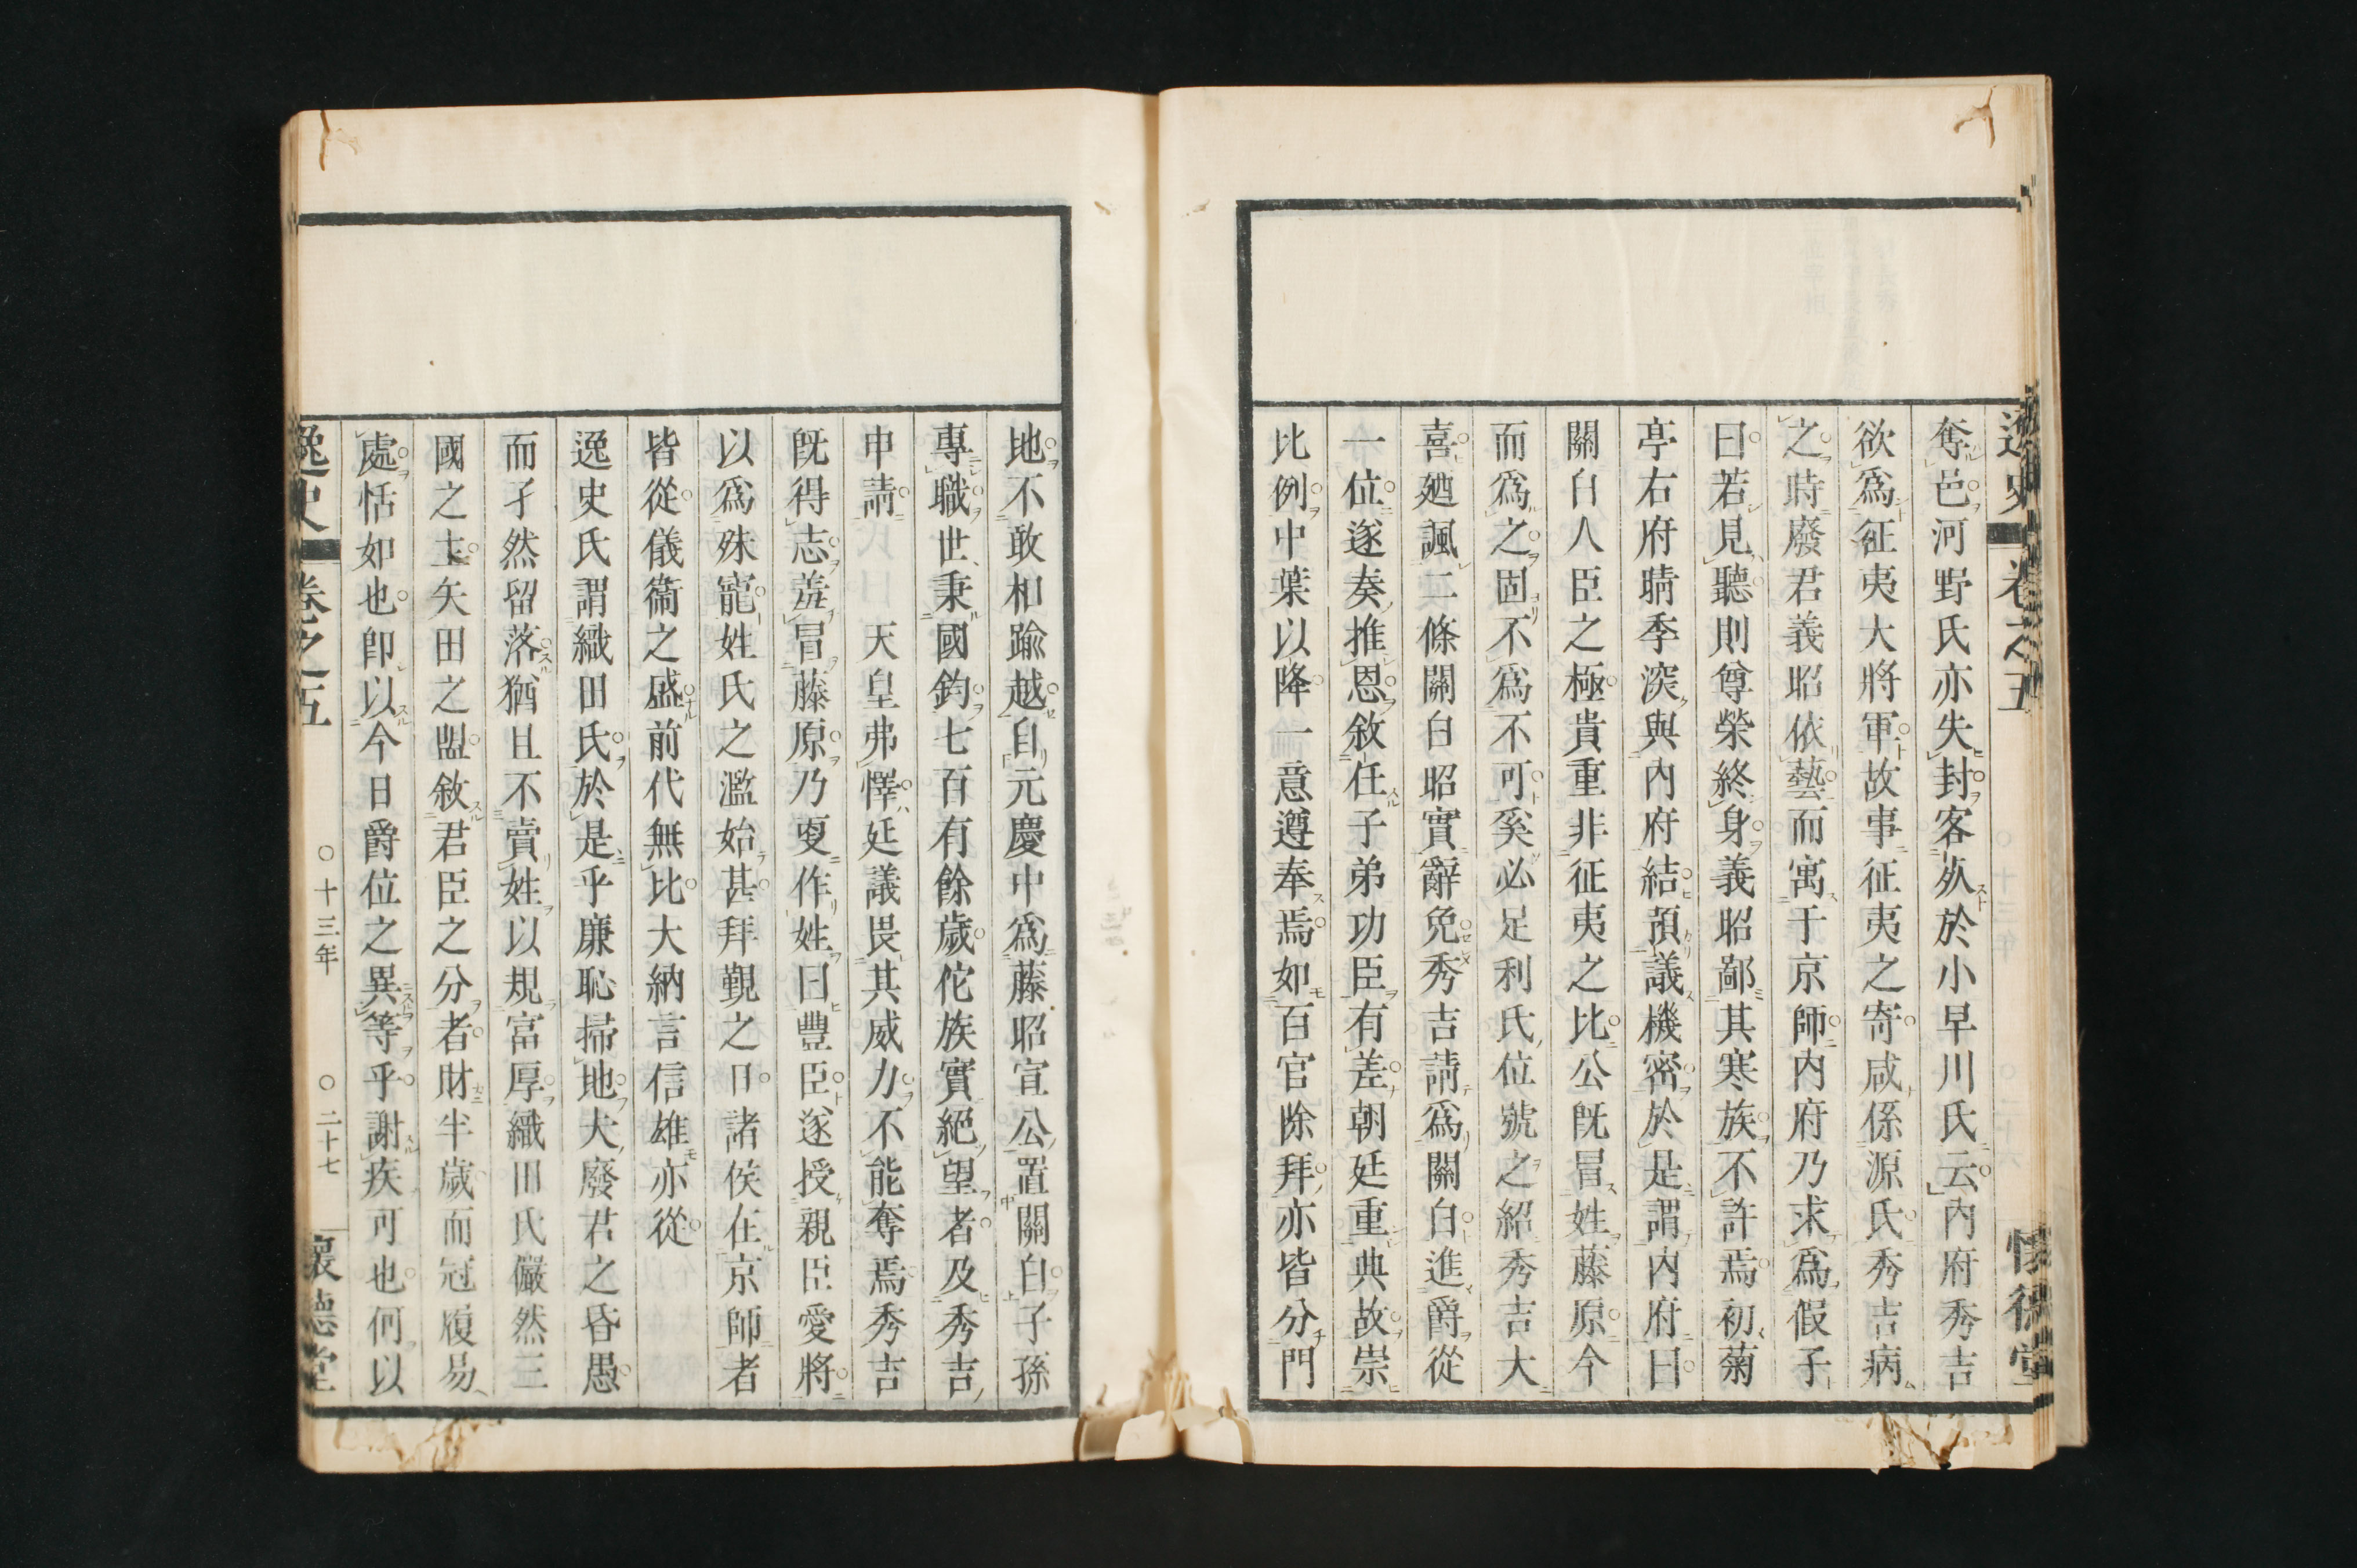 逸史 卷之五 懷德堂
奪邑河野氏亦失封客死於小早川氏云内府秀吉
欲爲征夷大將軍故事征夷之寄咸係源氏秀吉病
之時廢君義昭依藝而寓于京師内府乃求爲假子
曰若見聽則尊榮終身義昭鄙其寒族不許焉初菊
亭右府晴季深與内府結預議機密於是謂内府曰
關白人臣之極貴重非征夷之比公既冒姓藤原今
而爲之固不爲不可奚必足利氏位號之紹秀吉大
喜廼諷二條關白昭實辭免秀吉請爲關白進爵從
一位遂奏推恩敘任子弟功臣有差朝廷重典故崇
比例中葉以降一意遵奉焉如百官除拜亦皆分門
地不敢相踰越自元慶中爲藤昭宣公置關白子孫
專職世秉國鈞七百有餘歲佗族實絕望者及秀吉
申請 天皇弗懌廷議畏其威力不能奪焉秀吉
既得志羞冒藤原乃更作姓曰豐臣遂授親臣愛將
以爲殊寵姓氏之濫始甚拜覲之日諸侯在京師者
皆從儀衞之盛前代無比大納言信雄亦從
逸史氏謂織田氏於是乎廉恥掃地大廢君之昏愚
而孑然留落猶且不賣姓以規富厚織田氏儼然三
國之主矢田之盟敘君臣之分者財半歲而冠履易
處恬如也卽以今日爵位之異等乎謝疾可也何以
逸史 卷之五 ○十三年 ○二十七 懷德堂